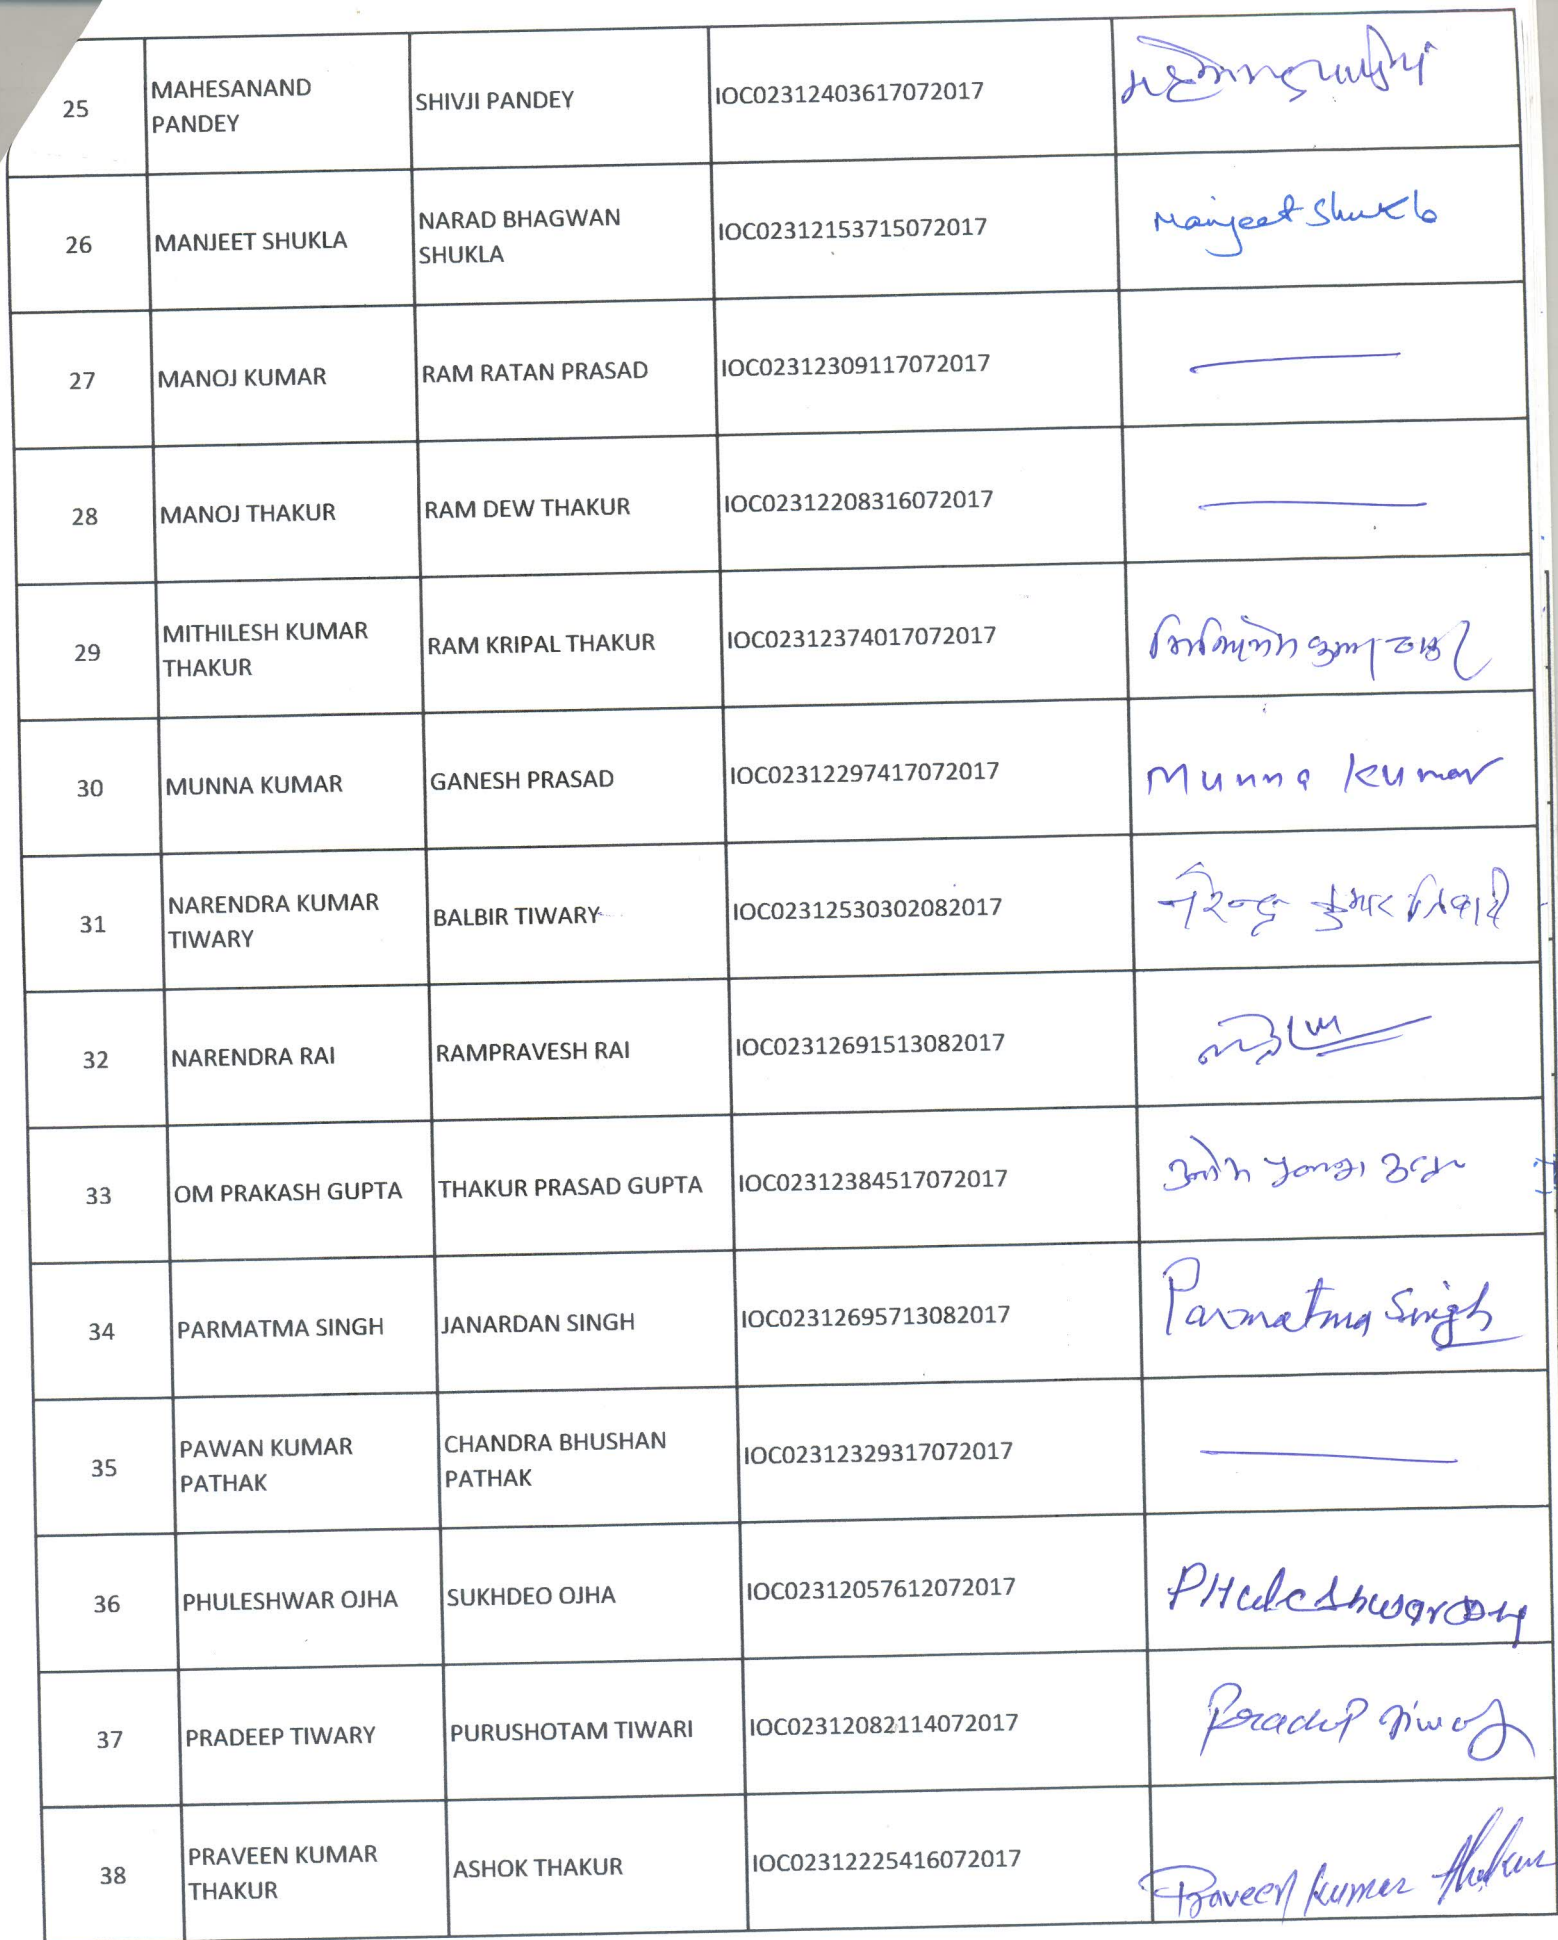 25 MAHESANAND SHIVJI PANDEY IOC02312403617072017
PANDEY
26 MANJEET SHUKLA NARAD BHAGWAN IOC02312153715072017 Manjeet Shukla
SHUKLA
27 MANOJ KUMAR RAM RATAN PRASAD IOC02312309117072017
28 MANOJ THAKUR RAM DEW THAKUR IOC02312208316072017
29 MITHILESH KUMAR RAM KRIPAL THAKUR IOC02312374017072017
THAKUR
30 MUNNA KUMAR GANESH PRASAD IOC02312297417072017 Munna Kumar
31 NARENDRA KUMAR BALBIR TIWARY IOC02312530302082017 नरेन्द्र कुमार तिवारी
TIWARY
32 NARENDRA RAI RAMPRAVESH RAI IOC02312691513082017
33 OM PRAKASH GUPTA THAKUR PRASAD GUPTA IOC02312384517072017
34 PARMATMA SINGH JANARDAN SINGH IOC02312695713082017 Parmatma Singh
35 PAWAN KUMAR CHANDRA BHUSHAN IOC02312329317072017
PATHAK PATHAK
36 PHULESHWAR OJHA SUKHDEO OJHA IOC02312057612072017
37 PRADEEP TIWARY PURUSHOTAM TIWARI IOC02312082114072017
38 PRAVEEN KUMAR ASHOK THAKUR IOC02312225416072017 Praveen Kumar Thakur
THAKUR